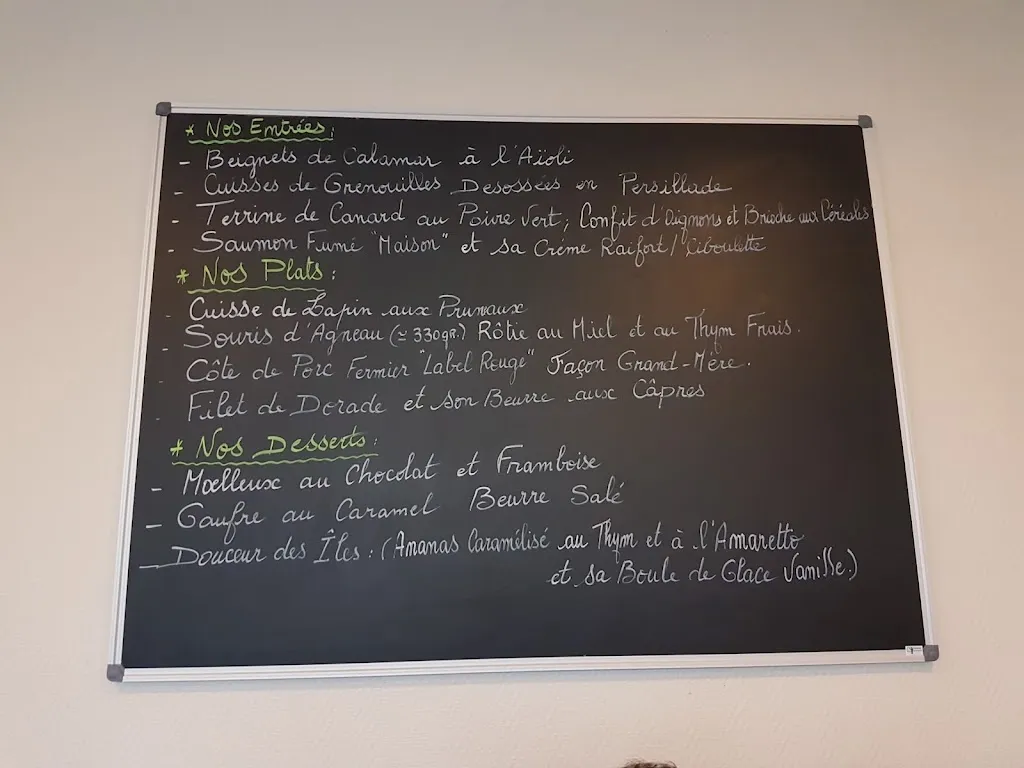 * Nos Entrées:
- Beignets de Calamar à l'Aïoli
- Cuisses de Grenouilles Desossées en Persillade
- Terrine de Canard au Poivre Vert; Confit d'Oignons et Brioche aux Céréales
- Saumon Fumé "Maison" et sa Crème Raifort/Ciboulette
* Nos Plats:
- Cuisse de Lapin aux Pruneaux
- Souris d'Agneau (≃ 330gr.) Rôtie au Miel et au Thym Frais.
- Côte de Porc Fermier "Label Rouge" Façon Grand-Mère.
- Filet de Dorade et son Beurre aux Câpres
* Nos Desserts:
- Moelleux au Chocolat et Framboise
- Gaufre au Caramel Beurre Salé
- Douceur des Îles: (Ananas Caramélisé au Thym et à l'Amaretto
et sa Boule de Glace Vanille.)